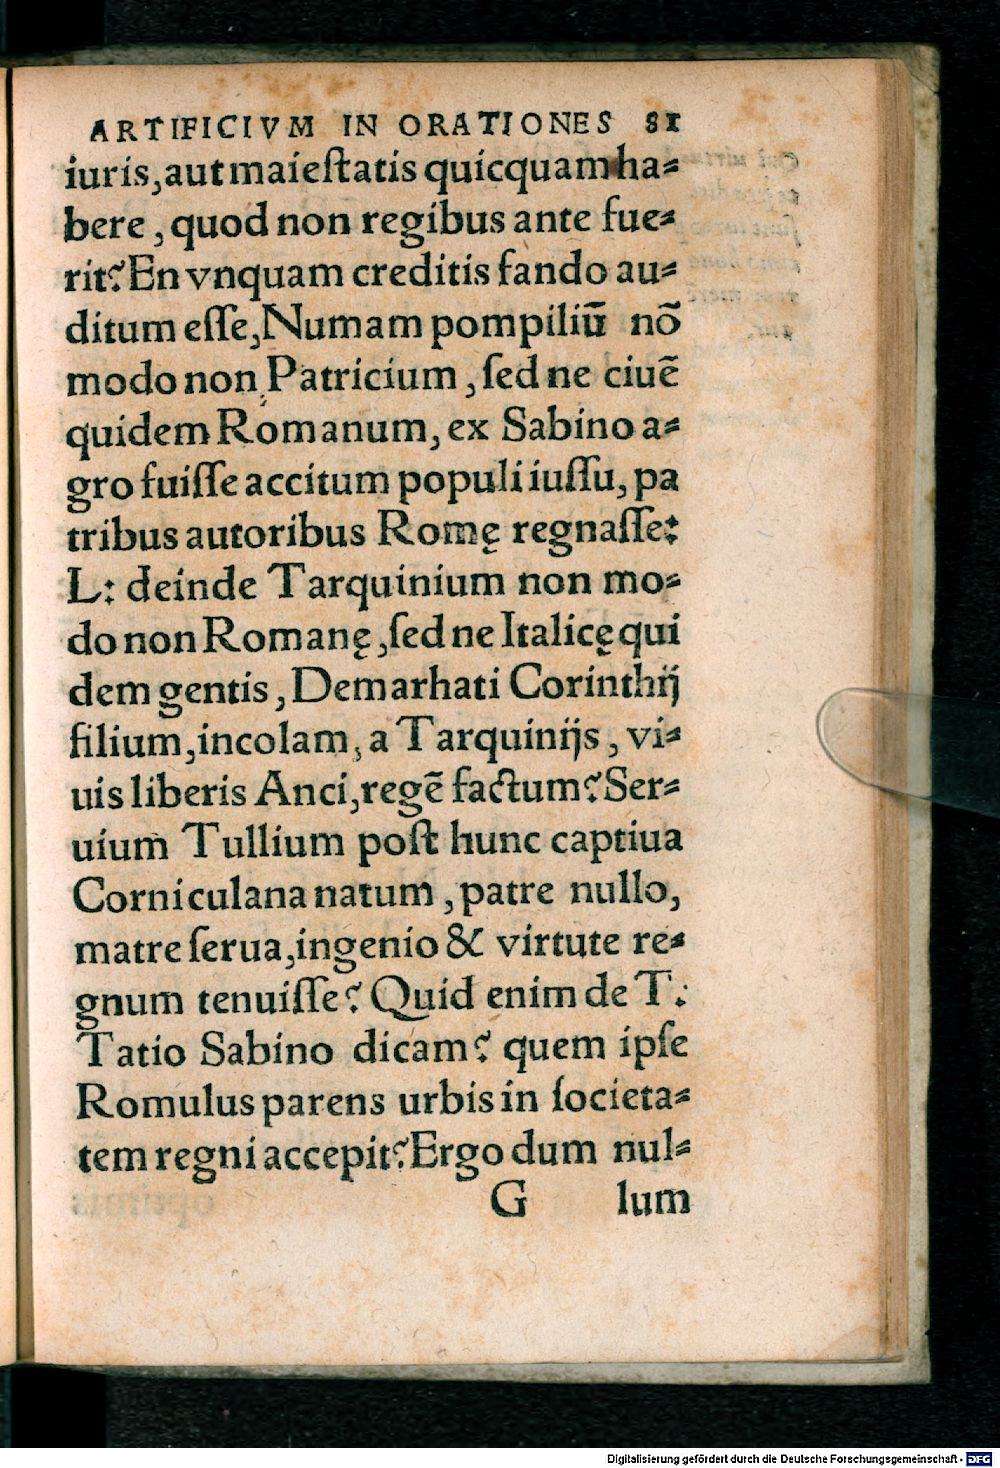 ARTIFICIVM IN ORATIONES 81
iuris,aut maieſtatis quicquam ha⸗
bere, quod non regibus ante fue⸗
rit? En vnquam creditis fando au⸗
ditum eſſe, Numam pompiliū nō
modo non Patricium, ſed ne ciuē
quidem Romanum, ex Sabino a⸗
gro fuiſſe accitum populi iuſſu, pa
tribus autoribus Romę regnaſſe:
L: deinde Tarquinium non mo⸗
do non Romanę, ſed ne Italicę qui
dem gentis, Demarhati Corinthij
filium, incolam, a Tarquinijs, vi⸗
uis liberis Anci, regē factum? Ser⸗
uium Tullium poſt hunc captiua
Corniculana natum, patre nullo,
matre ſerua, ingenio & virtute re⸗
gnum tenuiſſe? Quid enim de T.
Tatio Sabino dicam? quem ipſe
Romulus parens urbis in ſocieta⸗
tem regni accepit? Ergo dum nul⸗
G lum
Digitalisierung gefördert durch die Deutsche Forschungsgemeinschaft - DFG